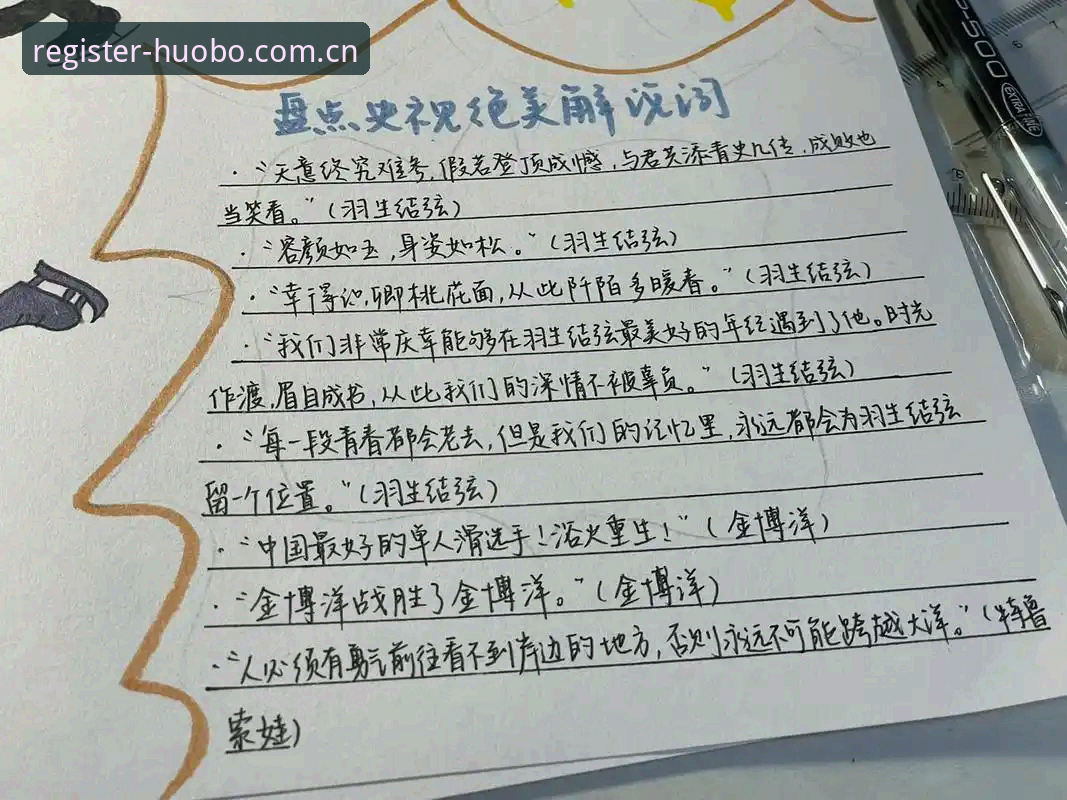 register-huobo.com.cn
盘点央视绝美解说词
·“天意终究难参,假若登顶成憾,与君共添青史几传,成败也
当笑看。”(羽生结弦)
·“容颜如玉,身姿如松。”(羽生结弦)
·“幸得识卿桃花面,从此阡陌多暖春。”(羽生结弦)
·“我们非常庆幸能够在羽生结弦最美好的年纪遇到了他。时光
作渡,眉目成书,从此我们的深情不被辜负。”(羽生结弦)
·“每一段青春都会老去,但是我们的记忆里,永远都会为羽生结弦
留一个位置。”(羽生结弦)
·“中国最好的单人滑选手!浴火重生!”(金博洋)
·“金博洋战胜了金博洋。”(金博洋)
·“人必须有勇气前往看不到岸边的地方,否则永远不可能跨越大洋。”(特鲁
索娃)
S-500
EXTRA FINE